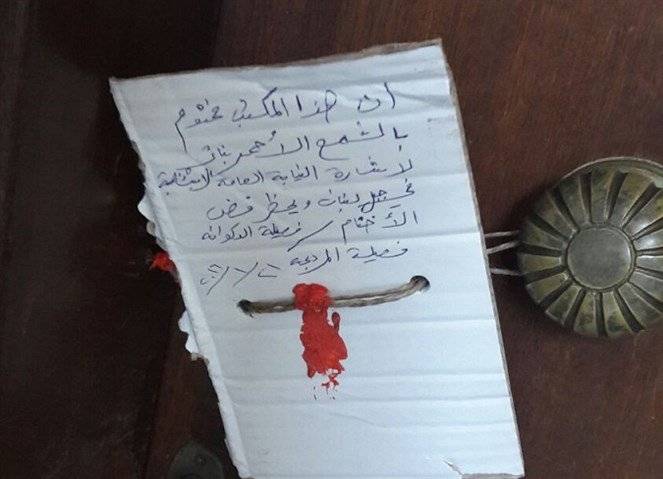 ان هذا المكتب مختوم
بالشمع الاحمر بناء
لاشارة النيابة العامة الاستئنافية
في جبل لبنان ويحظر فض
الأختام فصيلة الدكوانة
فصيلة المريجة